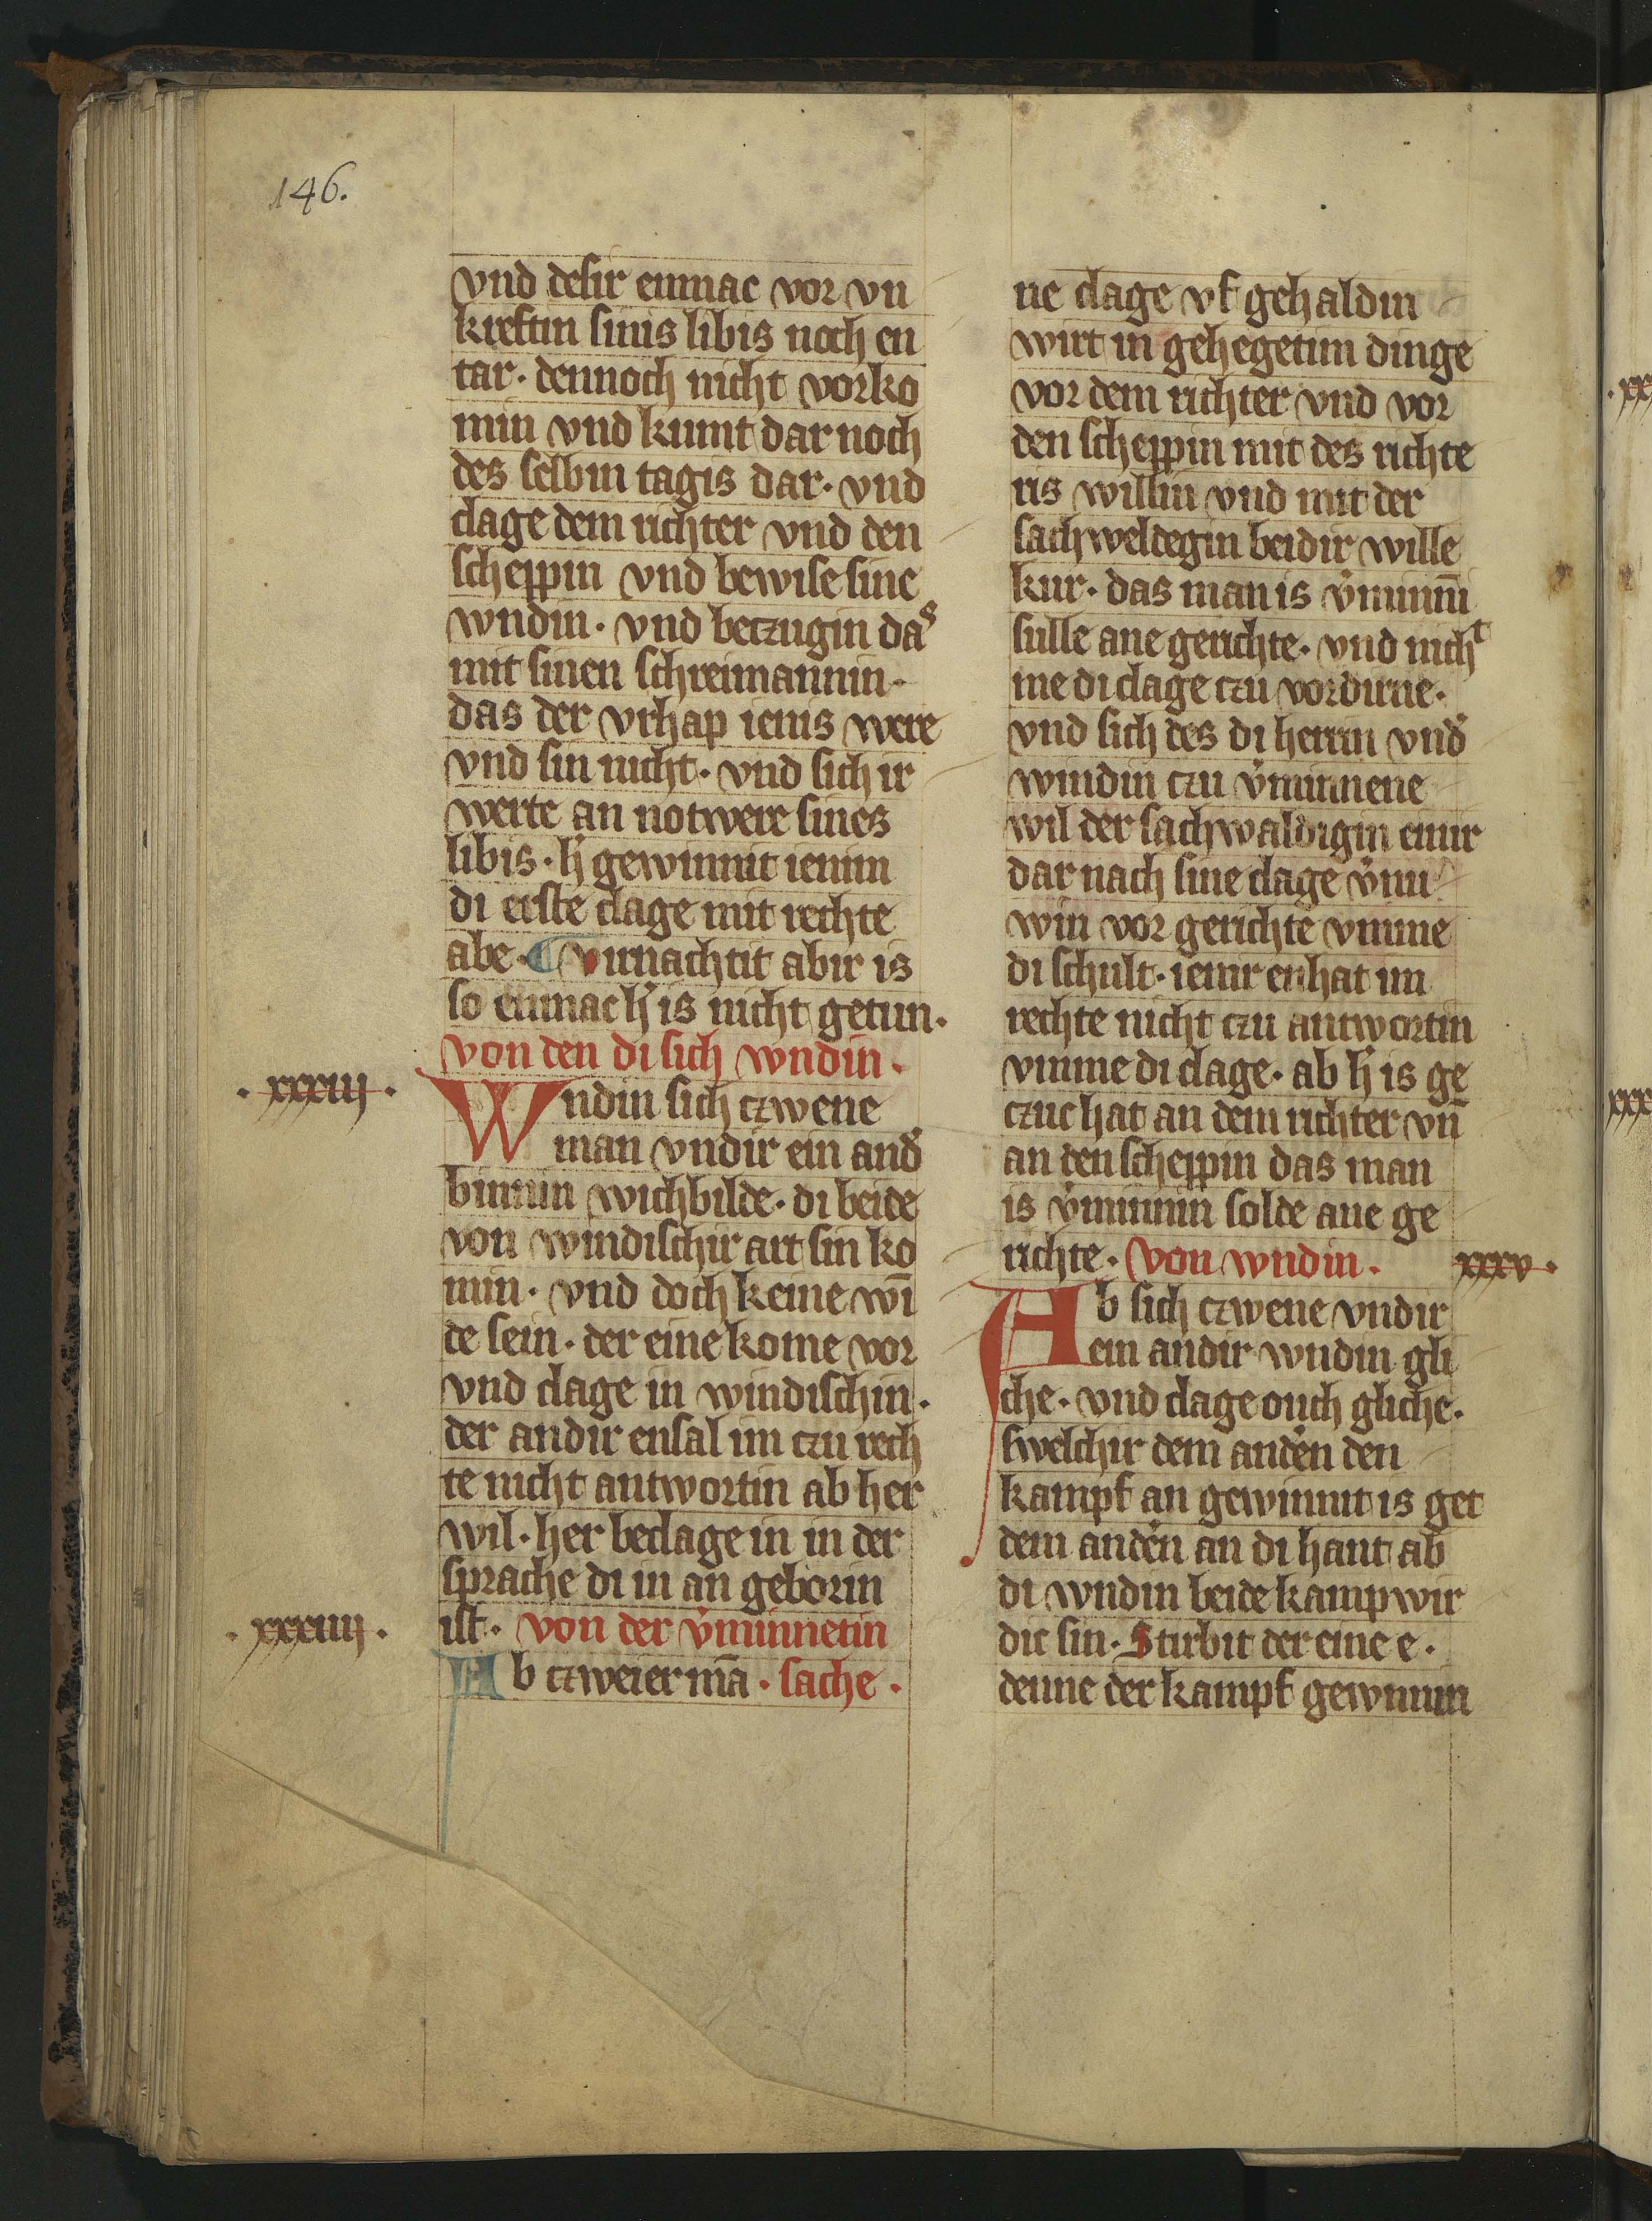 146.
vnd desir enmac vor vn
kreftin sinis libis noch en
tar. dennoch nicht vorko
min vnd kumt dar noch
des selbin tagis dar. vnd
clage dem richter vnd den
scheppin vnd bewise sine
wndin. vnd betzugin das
mit sinen schreimannin.
das der vrhap ienis were
vnd sin nicht. vnd sich ir
werte an notwere sines
libis. h̓ gewinnit ienim
di erste clage mit rechte
abe. virnachtit abir is
so enmac h̓ is nicht getun.
von den di sich wndin.
. xxxiij .
Wndin sich czwene
man vndir ein and̓
binnin wichbilde. di beide
von windischir art sin ko
min. vnd doch keine wī
de sein. der eine kome vor
vnd clage in windischin.
der andir ensal im czu rech
te nicht antwortin ab her
wil. her beclage in in der
sprache di in an geborin
ist. von der v̓minnetin
. xxxiiij .
Ab czweier mā . sache .
ne clage vf gehaldin
wirt in gehegetim dinge
vor dem richter vnd vor
den scheppin mit des richte
ris willin vnd mit der
sachweldegin beidir wille
kur. das man is v̓minnī
sulle ane gerichte. vnd nicht
me di clage czu vordirne.
vnd sich des di herrin vnd̓
windin czu v̓minnene
wil der sachwaldigin einir
dar nach sine clage v̓nu
win vor gerichte vmme
di schult. ienir enhat im
rechte nicht czu antwortin
vmme di clage. ab h̓ is ge
czuc hat an dem richter vn̄
an den scheppin das man
is v̓minnin solde ane ge
richte. von wndin.
xxxv .
Ab sich czwene vndir
ein andir wndin gli
che. vnd clage ouch gliche.
swelchir dem anden̓ den
kampf an gewinnit is get
dem anden̓ an di hant ab
di wndin beide kampwir
dic sin. Stirbit der eine e.
denne der kampf gewnnin